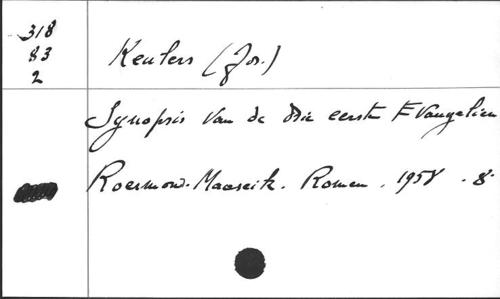 318
83
2
Keulers (Jos.)
Synopsis van de drie eerste Evangelien
Roermond-Maaseik. Romen. 1958. 8°